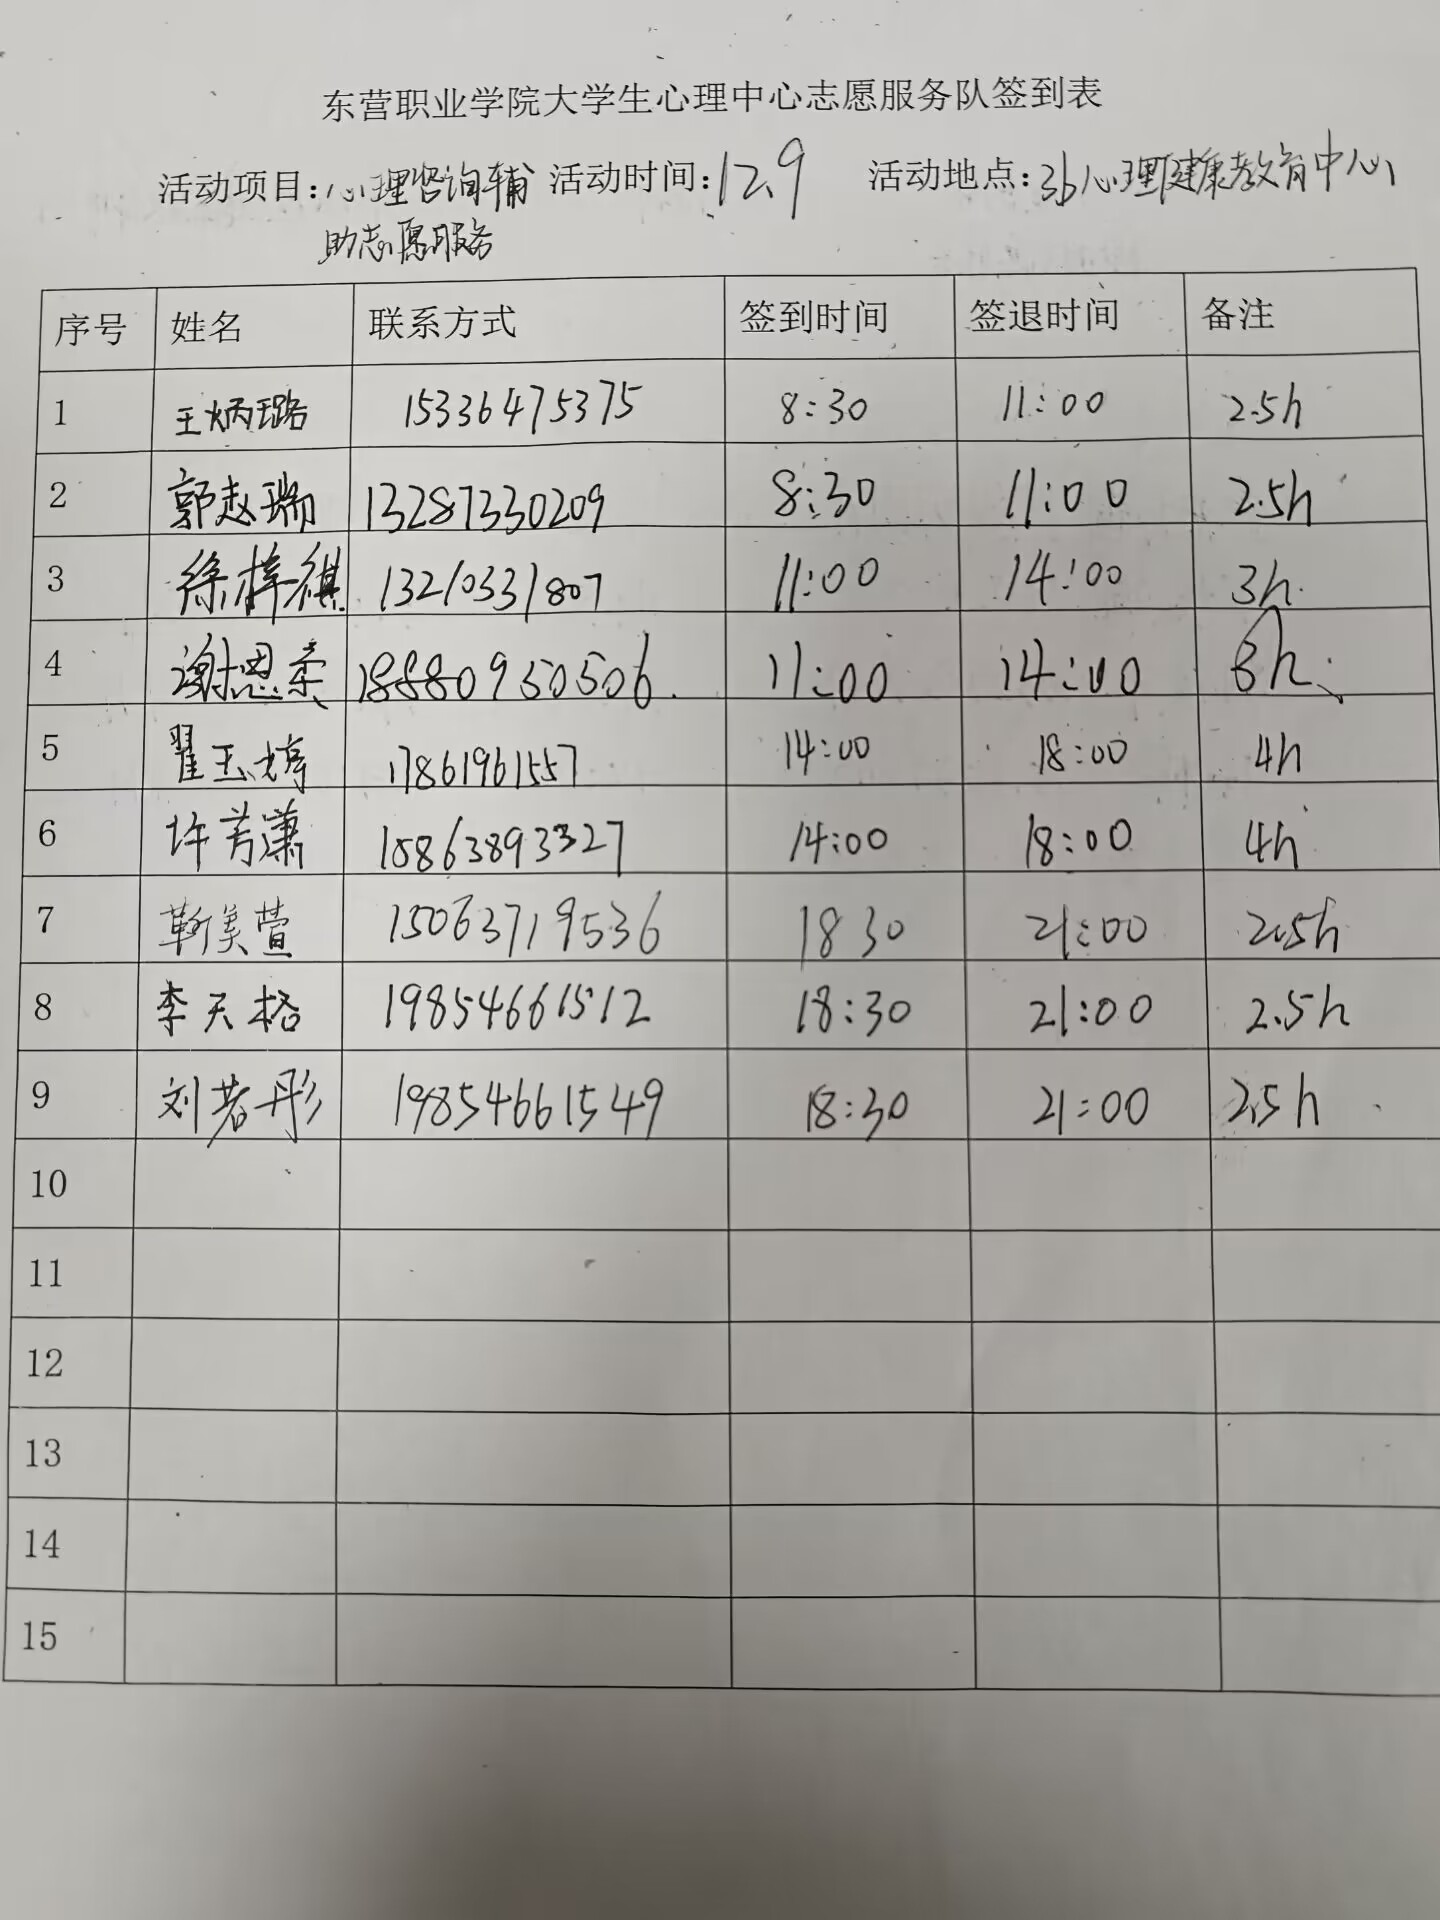 东营职业学院大学生心理中心志愿服务队签到表
活动项目：心理咨询辅 活动时间：12.9 活动地点：3b心理健康教育中心
助志愿服务
序号 姓名 联系方式 签到时间 签退时间 备注
1 王炳璐 15336475375 8:30 11:00 2.5h
2 郭赵瑞 13287330209 8:30 11:00 2.5h
3 徐梓祺 13210331807 11:00 14:00 3h
4 谢思柔 18880950506 11:00 14:00 3h
5 翟玉婷 17861961557 14:00 18:00 4h
6 许芳潇 15863893327 14:00 18:00 4h
7 靳美萱 15063719536 18 30 21:00 2.5h
8 李天格 19854661512 18:30 21:00 2.5h
9 刘若彤 19854661549 18:30 21:00 2.5h
10
11
12
13
14
15